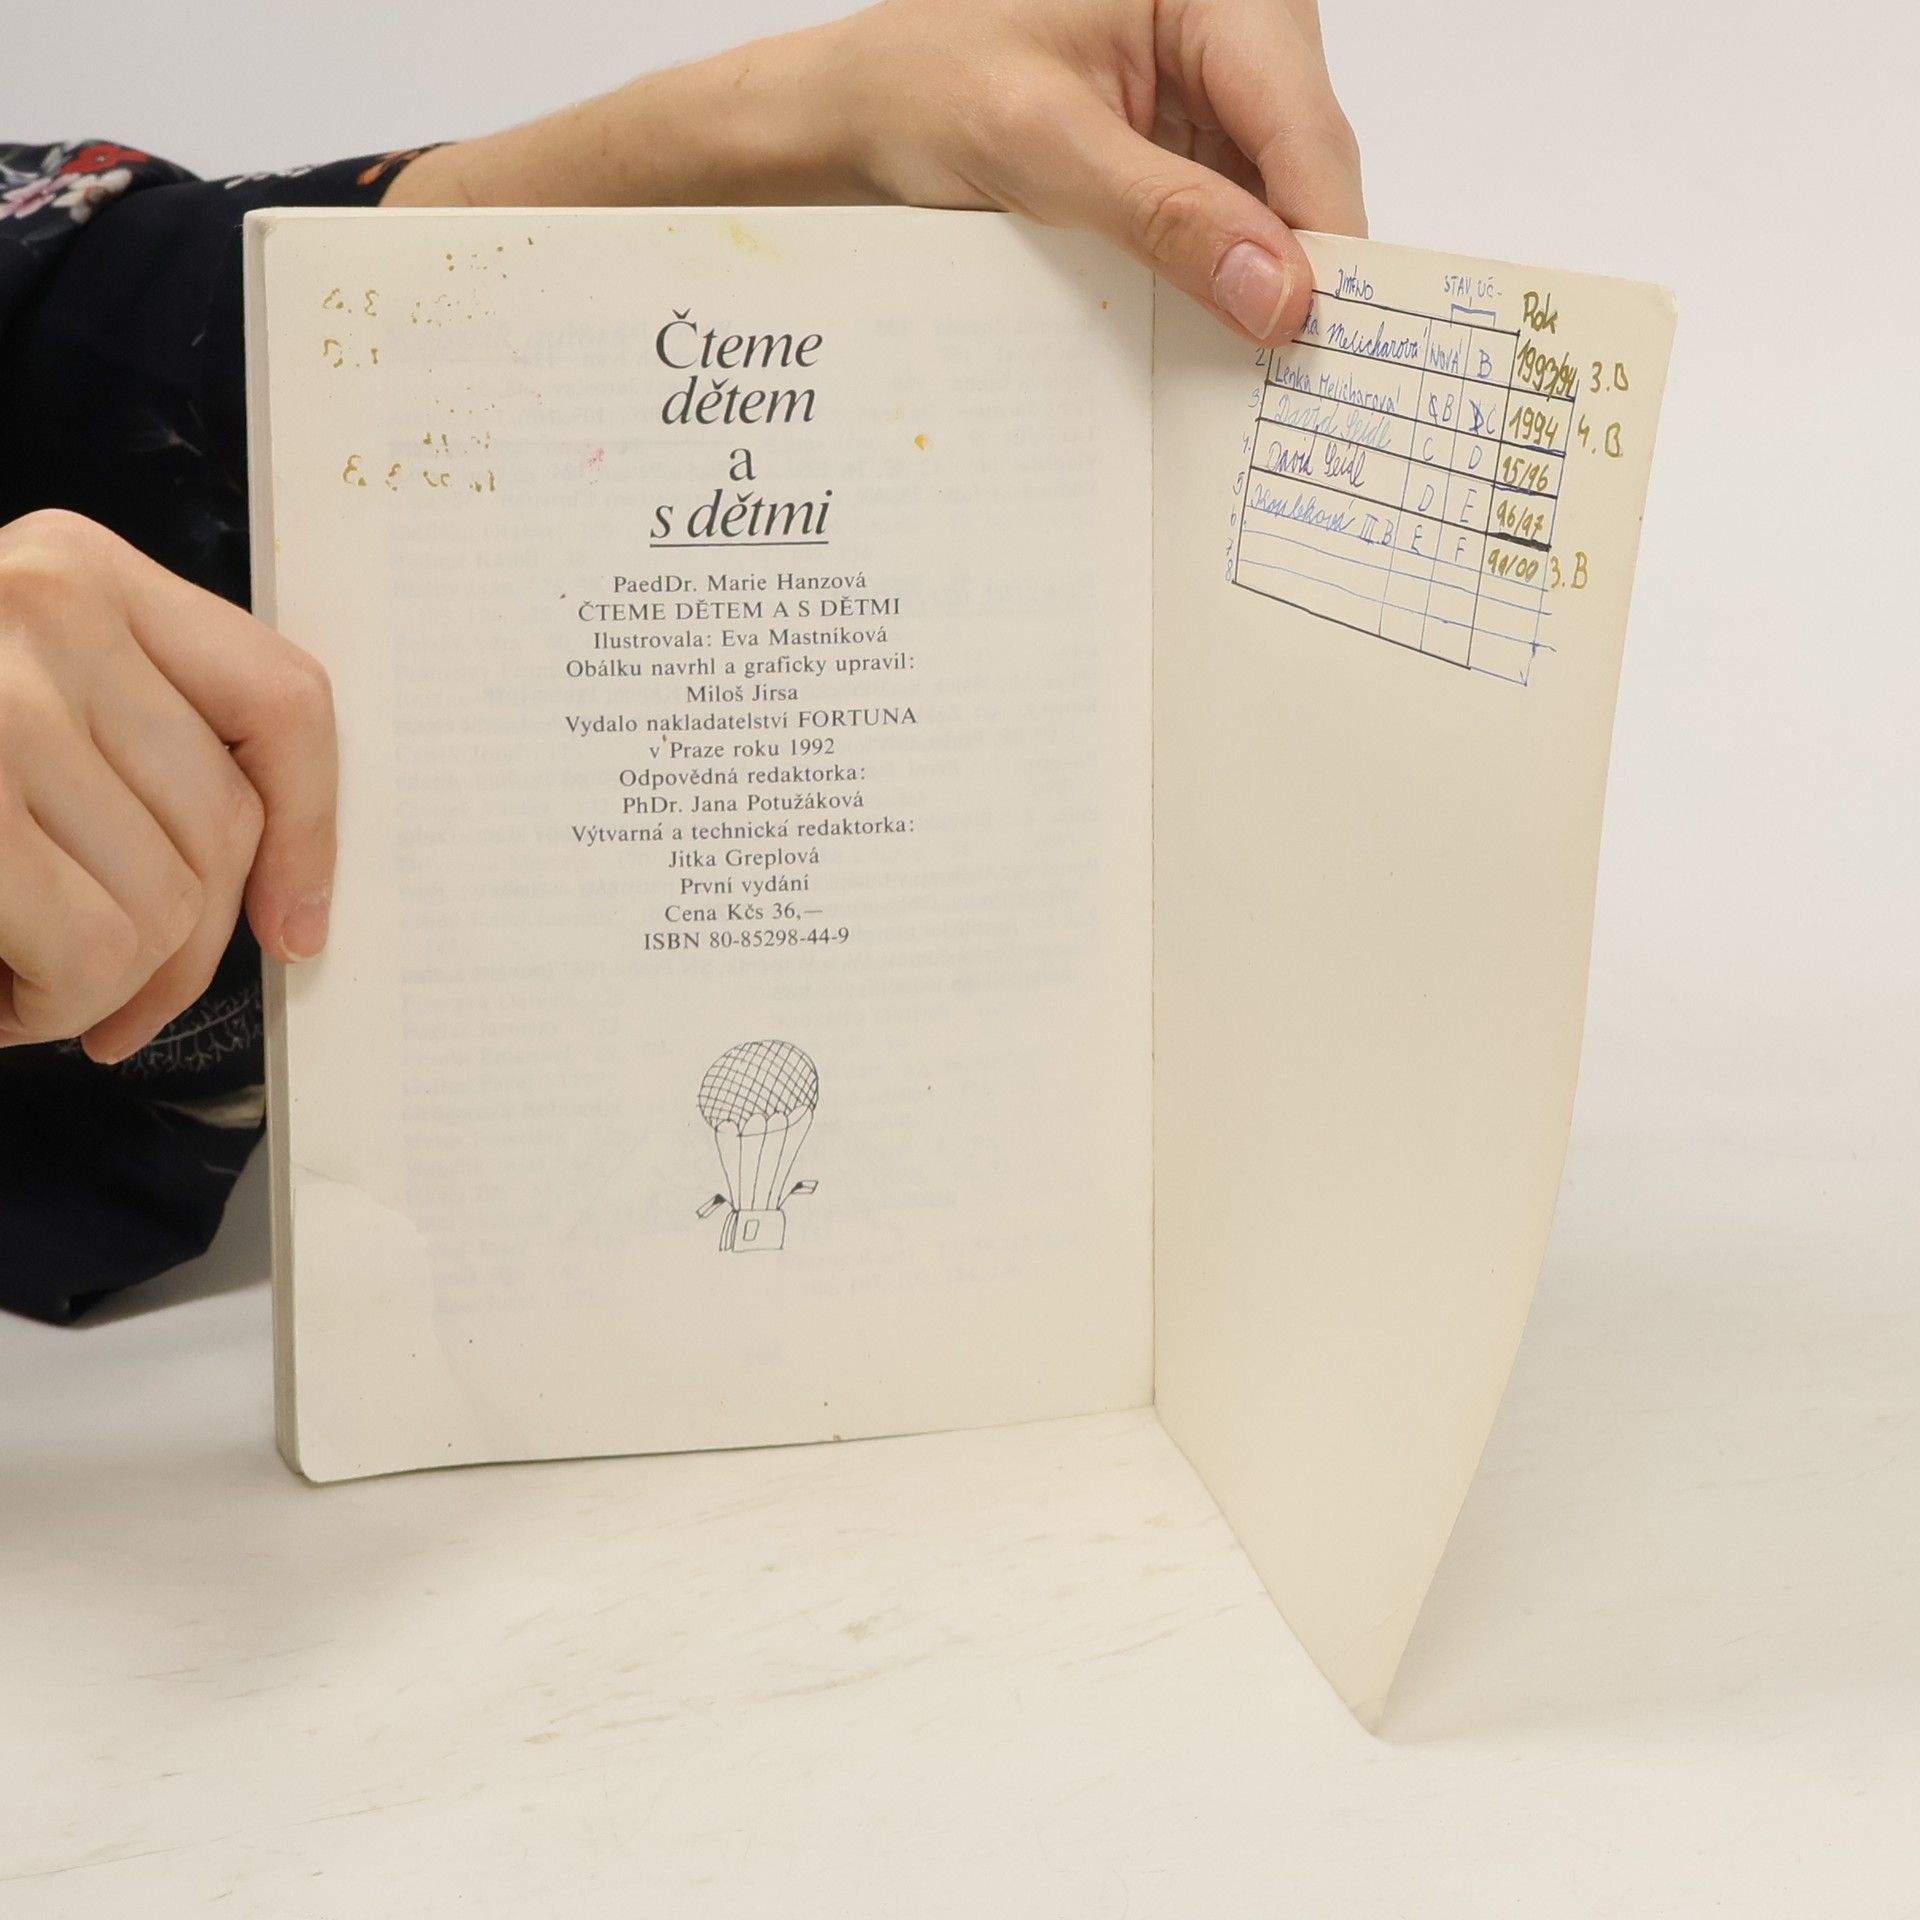 Čteme
dětem
a
s dětmi
PaedDr. Marie Hanzová
ČTEME DĚTEM A S DĚTMI
Ilustrovala: Eva Mastníková
Obálku navrhl a graficky upravil:
Miloš Jirsa
Vydalo nakladatelství FORTUNA
v Praze roku 1992
Odpovědná redaktorka:
PhDr. Jana Potužáková
Výtvarná a technická redaktorka:
Jitka Greplová
První vydání
Cena Kčs 36,—
ISBN 80-85298-44-9
JMÉNO STAV, UČ- Rok
Melicharová NOVÁ B 1993/94 3.B
2. Lenka Melicharová B C 1994 4.B
3. David Seidl C D 95/96
4. David Seidl D E 96/97
5 III.B E F 99/00 3.B
6
7
8